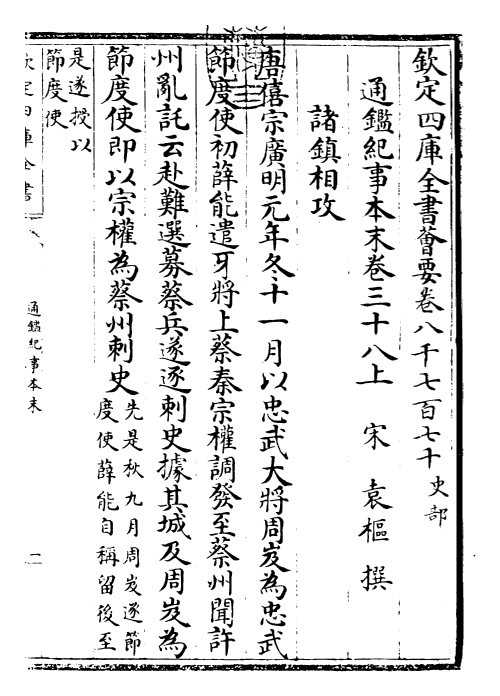 欽定四庫全書薈要卷八千七百七十 史部
通鑑紀事本末卷三十八上 宋 袁樞 撰
諸鎮相攻
唐僖宗廣明元年冬十一月以忠武大將周岌為忠武
節度使初薛能遣牙將上蔡秦宗權調發至蔡州聞許
州亂託云赴難選募蔡兵遂逐刺史據其城及周岌為
節度使即以宗權為蔡州刺史先是秋九月周岌逐節
度使薛能自稱留後至
是遂授以
節度使
欽定四庫全書
通鑑紀事本末